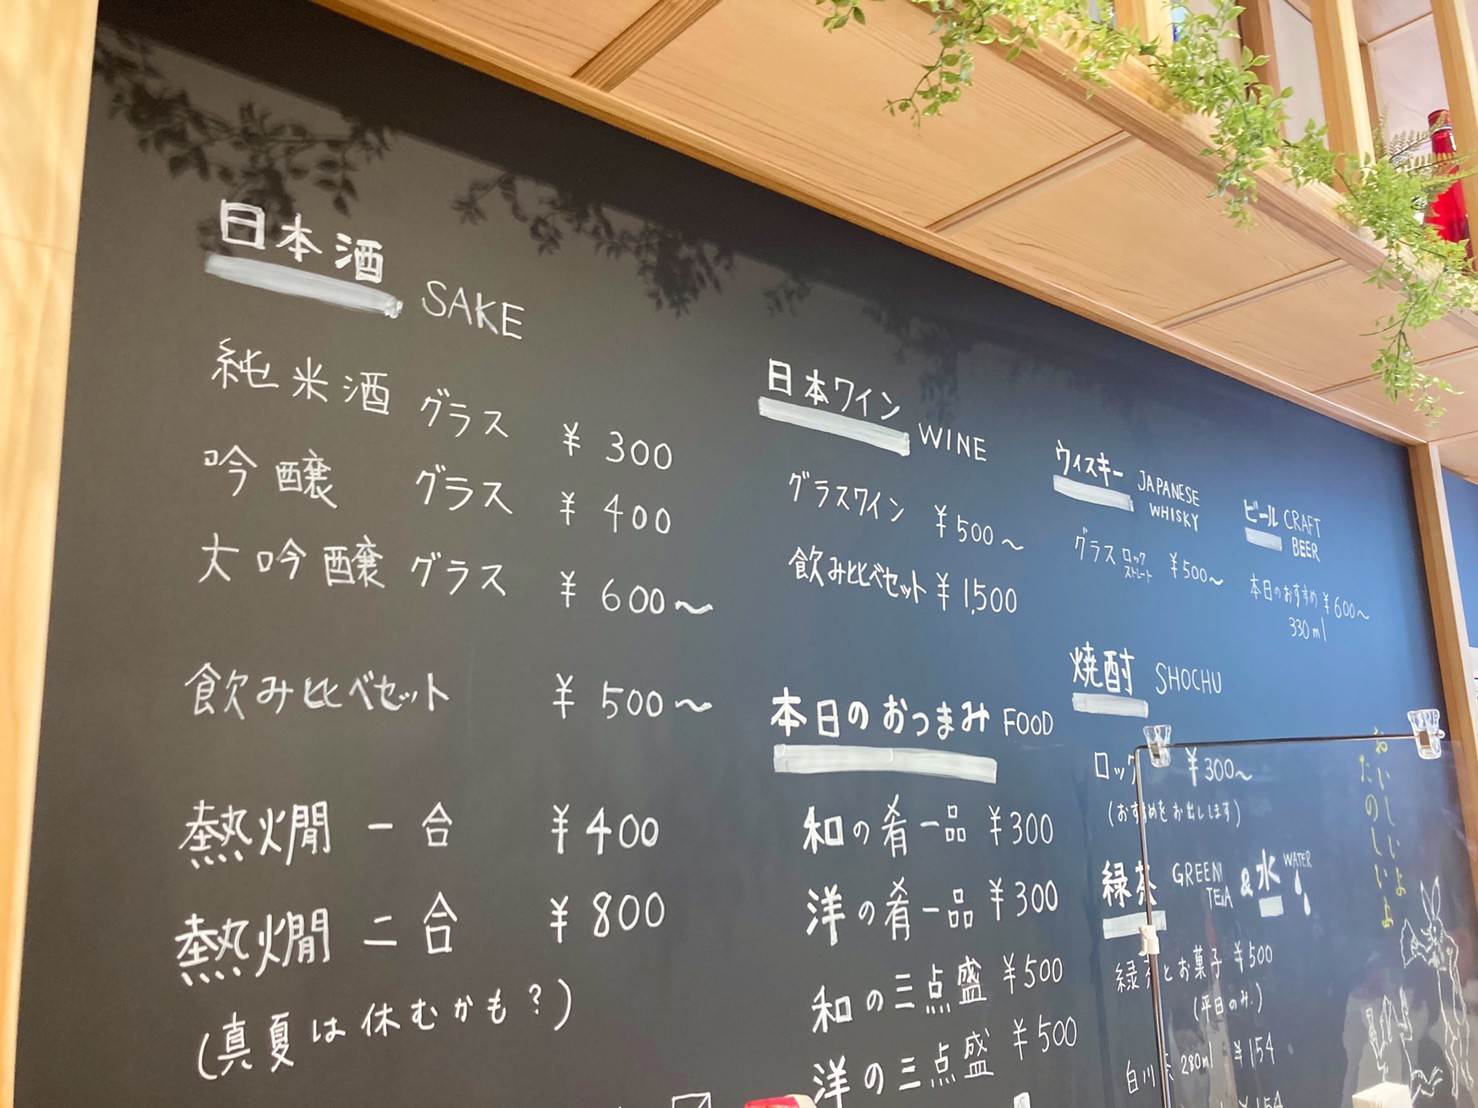 日本酒 SAKE
純米酒 グラス ¥300
吟醸 グラス ¥400
大吟醸 グラス ¥600〜
飲み比べセット ¥500〜
熱燗 一合 ¥400
熱燗 二合 ¥800
(真夏は休むかも?)
日本ワイン WINE
グラスワイン ¥500〜
飲み比べセット ¥1,500
本日のおつまみ FOOD
和の肴一品 ¥300
洋の肴一品 ¥300
和の三点盛 ¥500
洋の三点盛 ¥500
ウィスキー JAPANESE WHISKY
グラス ロック ストレート ¥500〜
ビール CRAFT BEER
本日のおすすめ ¥600〜
330ml
焼酎 SHOCHU
ロック ¥300〜
(おすすめをお出しします)
緑茶 GREEN TEA & 水 WATER
緑茶とお菓子 ¥500
(平日のみ)
白川茶 280ml ¥154
¥154
おいしいよ
たのしいよ